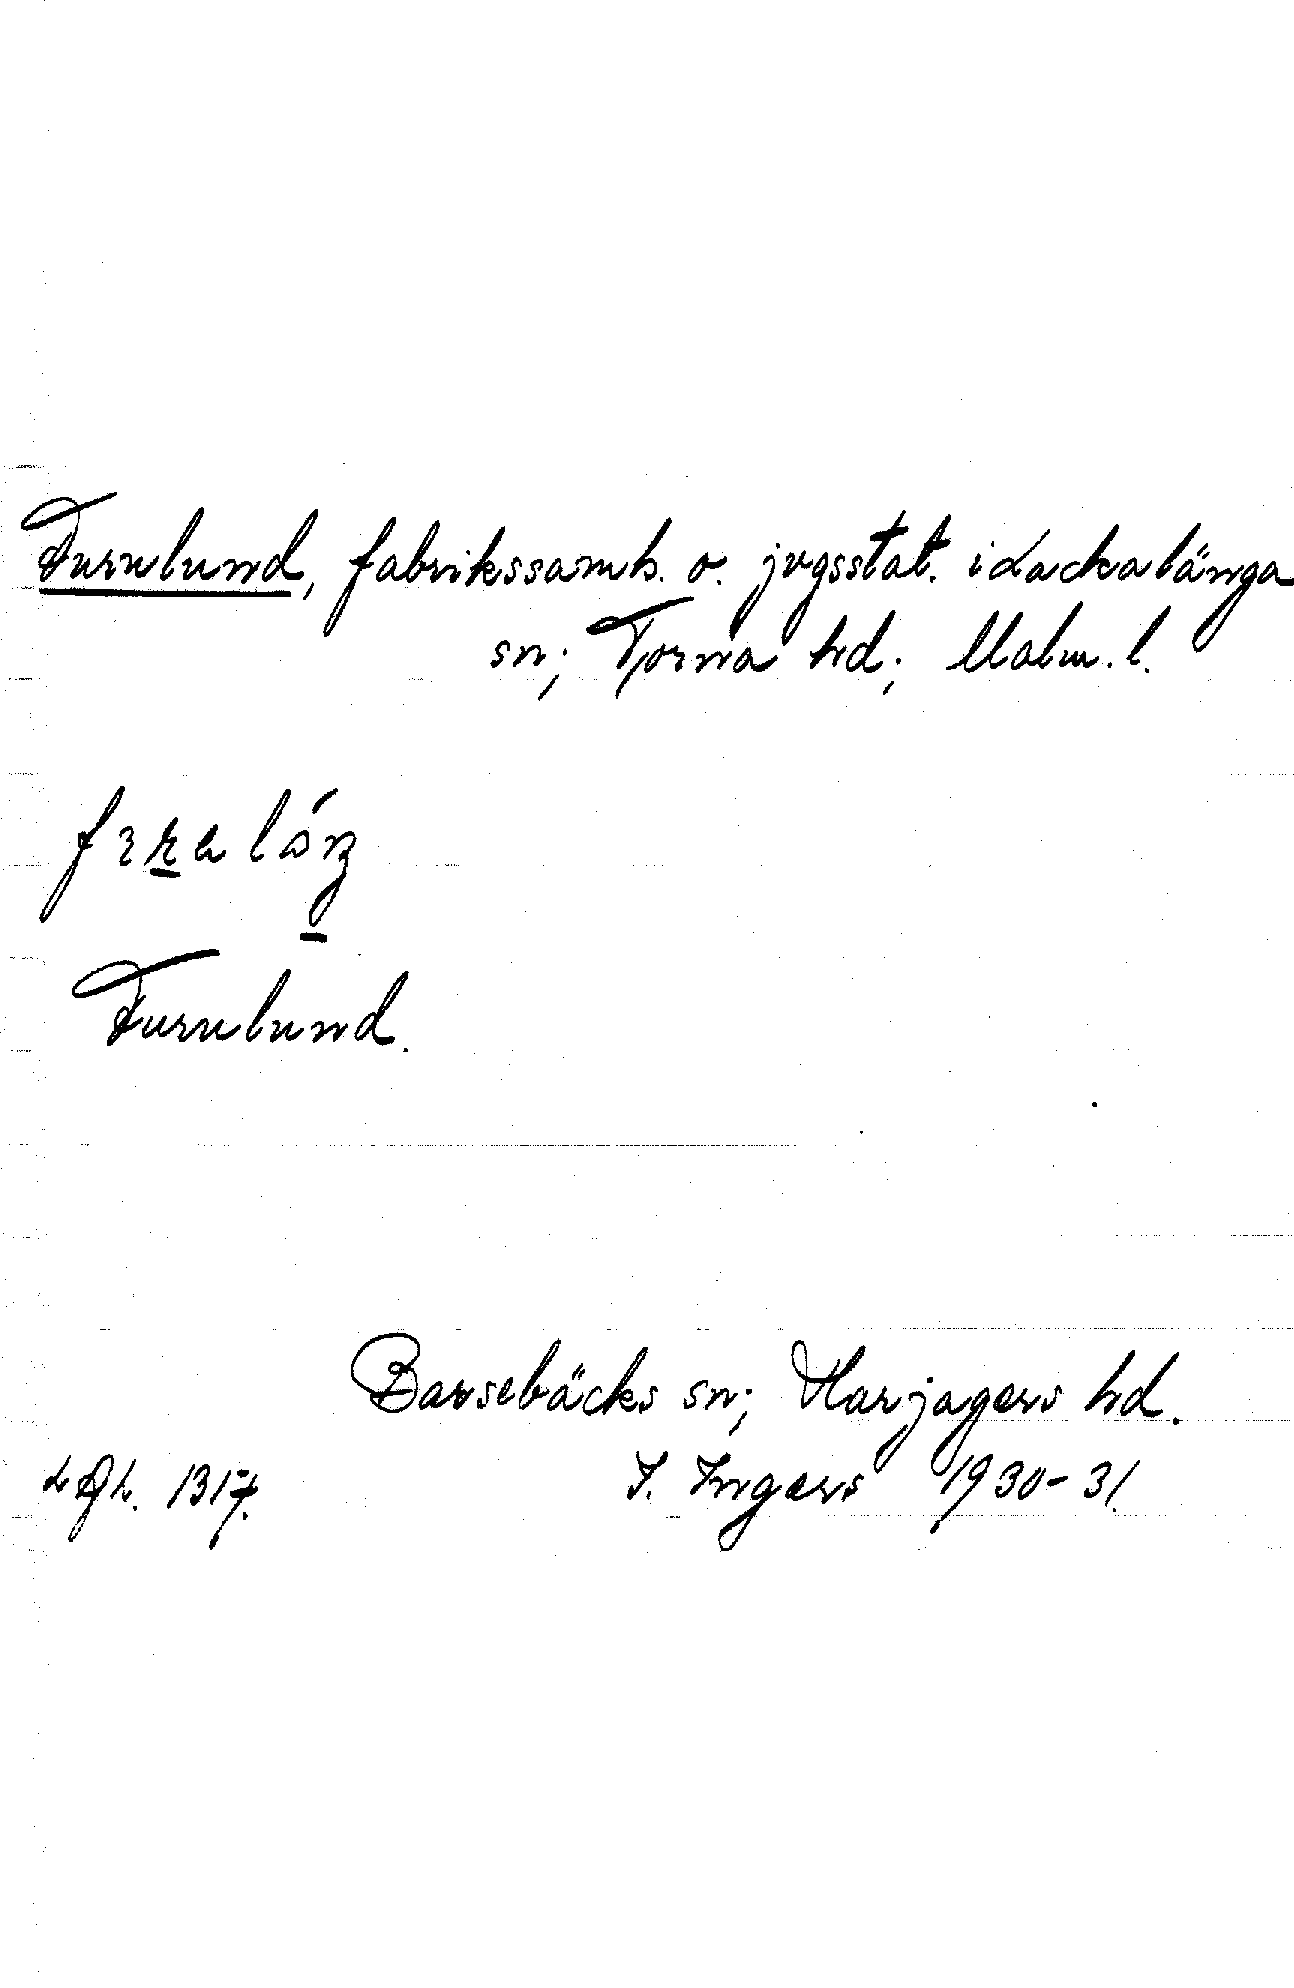 Furulund, fabrikssamh. o. jvgsstat. i Lackalänga
sn; Torna hd; Malm. l.
Furulund.
Barsebäcks sn; Harjagers hd.
LAL. 1317. I. Ingers 1930-31.